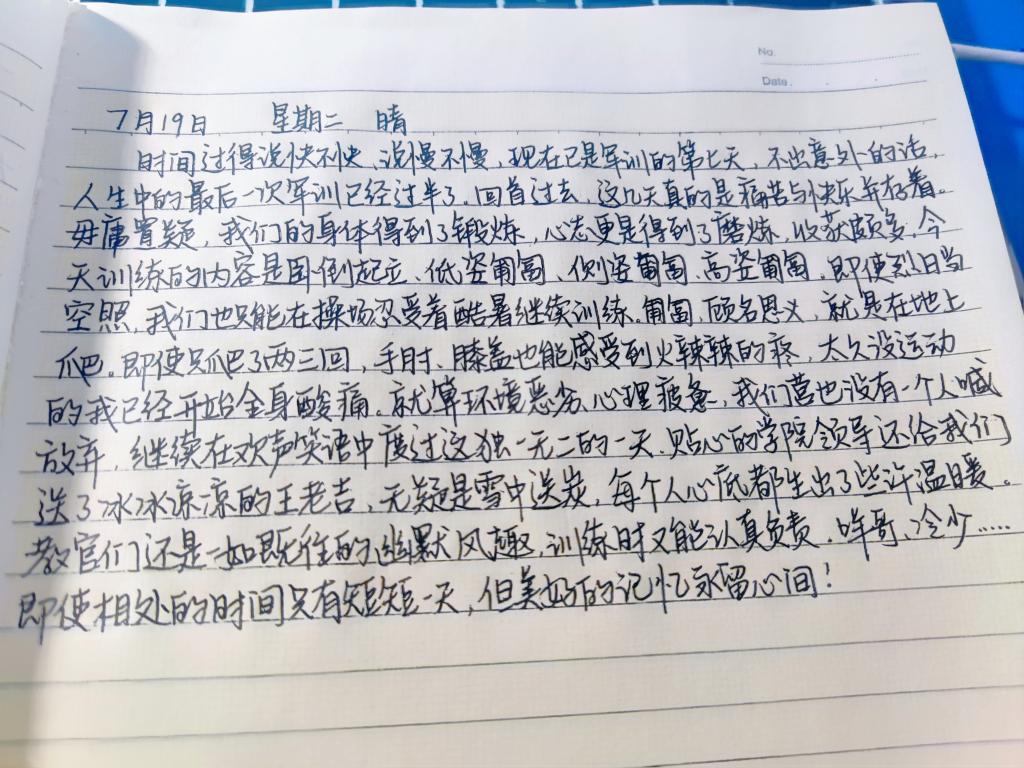 No.
Date.
7月19日 星期二 晴
时间过得说快不快、说慢不慢,现在已是军训的第七天,不出意外的话,
人生中的最后一次军训已经过半了。回首过去,这几天真的是痛苦与快乐并存着。
毋庸置疑,我们的身体得到了锻炼,心志更是得到了磨炼,收获颇多。今
天训练的内容是卧倒起立、低姿匍匐、侧姿匍匐、高姿匍匐。即使烈日当
空照,我们也只能在操场忍受着酷暑继续训练。匍匐,顾名思义,就是在地上
爬。即使只爬了两三回,手肘、膝盖也能感受到火辣辣的疼,太久没运动
的我已经开始全身酸痛。就算环境恶劣、心理疲惫,我们营也没有一个人喊
放弃,继续在欢声笑语中度过这独一无二的一天。贴心的学院领导还给我们
送了冰冰凉凉的王老吉,无疑是雪中送炭,每个人心底都生出了些许温暖。
教官们还是一如既往的幽默风趣,训练时又能认真负责。哞哥、冷少……
即使相处的时间只有短短一天,但美好的记忆永留心间!